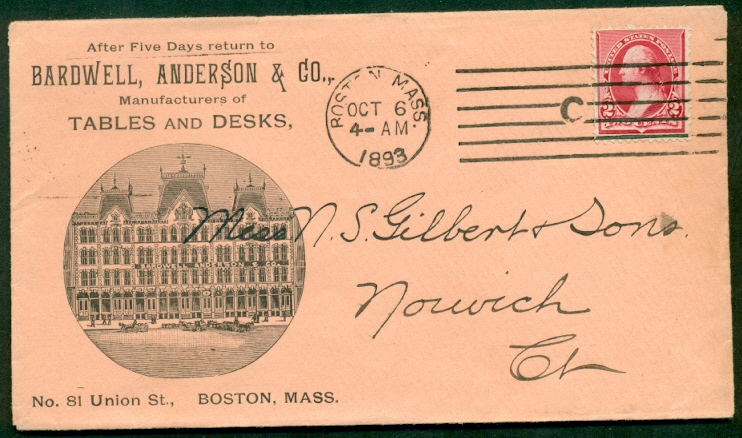 After Five Days return to
BARDWELL, ANDERSON & CO.,
Manufacturers of
TABLES AND DESKS,
BOSTON MASS.
OCT 6
4- AM
1893
C
UNITED STATES POSTAGE
2 2
BARDWELL ANDERSON & CO.
Mess N. S. Gilbert & Sons.
Norwich
Ct
No. 81 Union St., BOSTON, MASS.